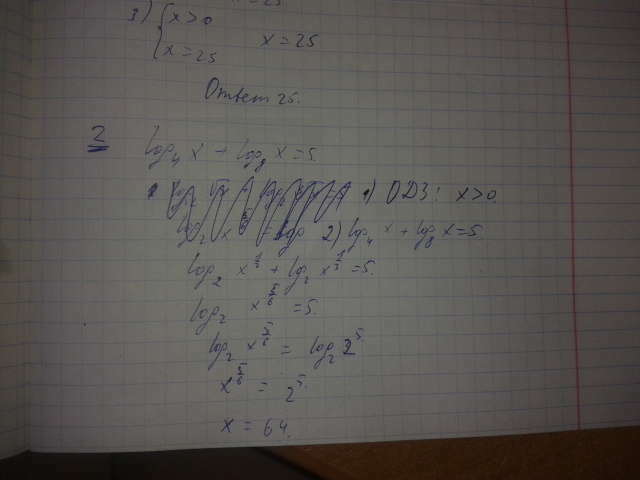 3) { x > 0
x = 25
x = 25
Ответ 25.
2
log₄ x + log₈ x = 5.
1) ОДЗ: x > 0.
2) log₄ x + log₈ x = 5.
log₂ x^{1/2} + log₂ x^{1/3} = 5.
log₂ x^{5/6} = 5.
log₂ x^{5/6} = log₂ 2^5.
x^{5/6} = 2^5.
x = 64.